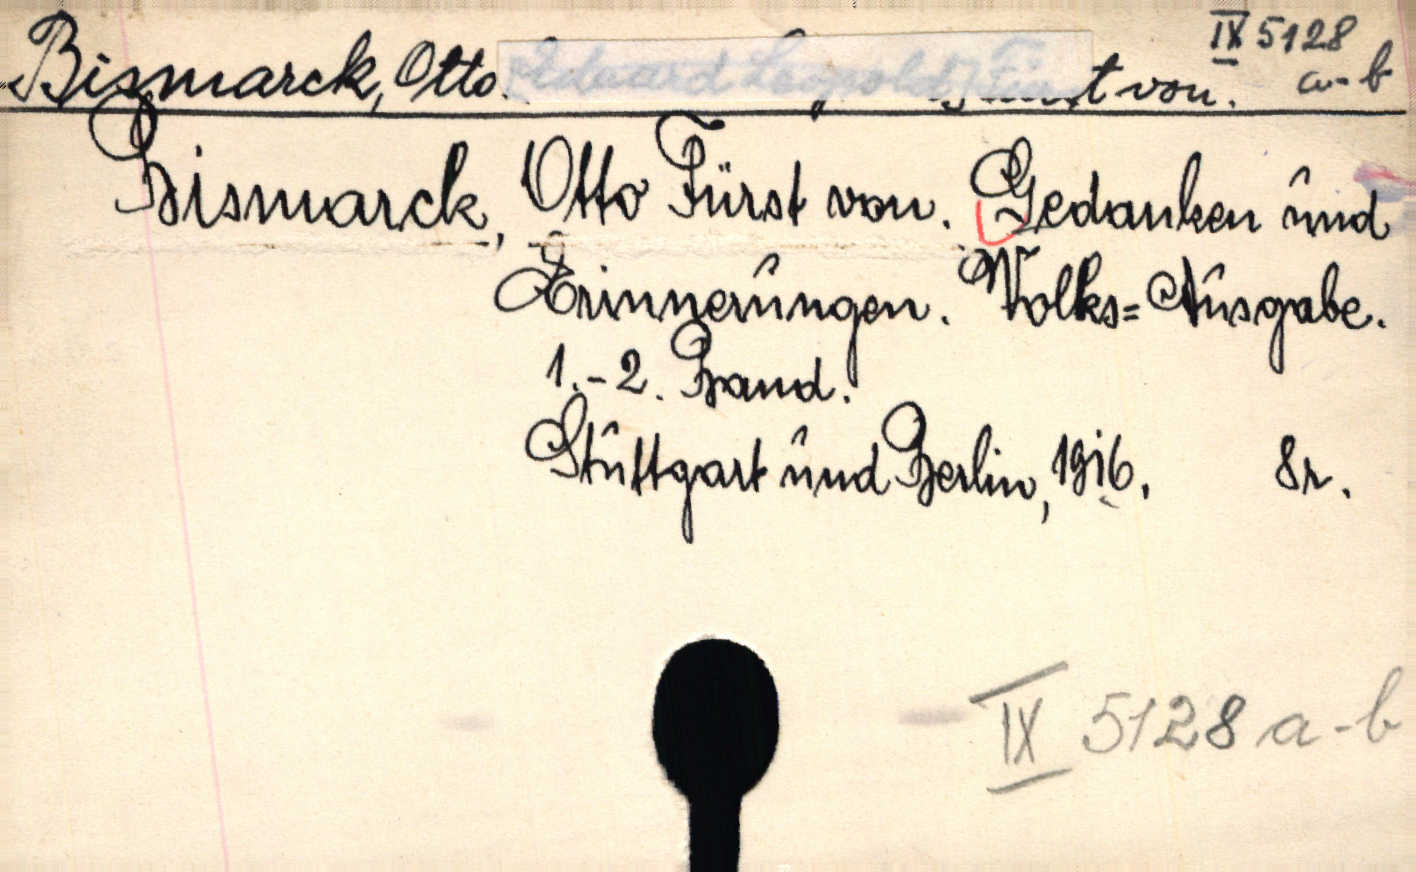 Bismarck, Otto Eduard Leopold, Fürst von. IX 5128 a-b
Bismarck, Otto Fürst von. Gedanken und
Erinnerungen. Volks=Ausgabe.
1.-2. Band.
Stuttgart und Berlin, 1916. 8r.
IX 5128 a-b